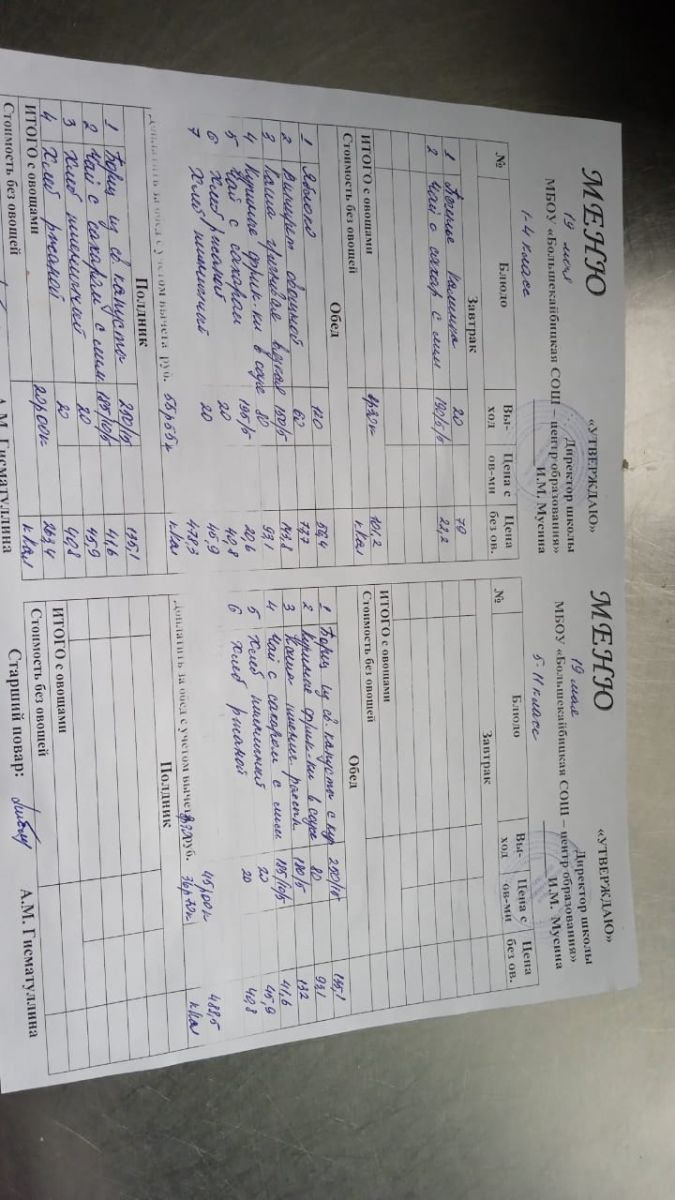 МЕНЮ
19 мая
МБОУ «Большекайбицкая СОШ – центр образования»
1-4 класс
«УТВЕРЖДАЮ»
Директор школы
И.М. Мусина
№ Блюдо Вы-ход Цена с ов-ми Цена без ов.
Завтрак
1 Печенье 20 79
2 Чай с сахар с лим 190/5/5 22,2
ИТОГО с овощами 4р30к 101,2
Стоимость без овощей ккал
Обед
1 Яблоко 120 56,4
2 Винегрет овощной 60 73,7
3 Каша гречневая вязкая 150/5 143,8
4 Куриные фрик-ки в соусе 80 93,1
5 Чай с сахаром 195/5 20,6
6 Хлеб ржаной 20 40,8
7 Хлеб пшеничный 20 45,9
474,3
доплатить за обед с учетом вычета руб. 55р55к ккал
Полдник
1 Борщ из св. капусты 250/15 135,1
2 Чай с сахаром с лим 185/10/5 41,6
3 Хлеб пшеничный 20 45,9
4 Хлеб ржаной 20 40,8
ИТОГО с овощами 20р00к 263,4
Стоимость без овощей ккал
А.М. Гисматуллина
МЕНЮ
19 мая
МБОУ «Большекайбицкая СОШ – центр образования»
5-11 класс
«УТВЕРЖДАЮ»
Директор школы
И.М. Мусина
№ Блюдо Вы-ход Цена с ов-ми Цена без ов.
Завтрак
ИТОГО с овощами
Стоимость без овощей
Обед
1 Борщ из св. капусты с кур 250/15 135,1
2 Куриные фрик-ки в соусе 80 93,1
3 Каша пшенич. рассып. 180/5 132
4 Чай с сахаром с лим 185/10/5 41,6
5 Хлеб пшеничный 20 45,9
6 Хлеб ржаной 20 40,8
45р00к 488,5
доплатить за обед с учетом вычета руб. 36р70к ккал
Полдник
ИТОГО с овощами
Стоимость без овощей
Старший повар: А.М. Гисматуллина